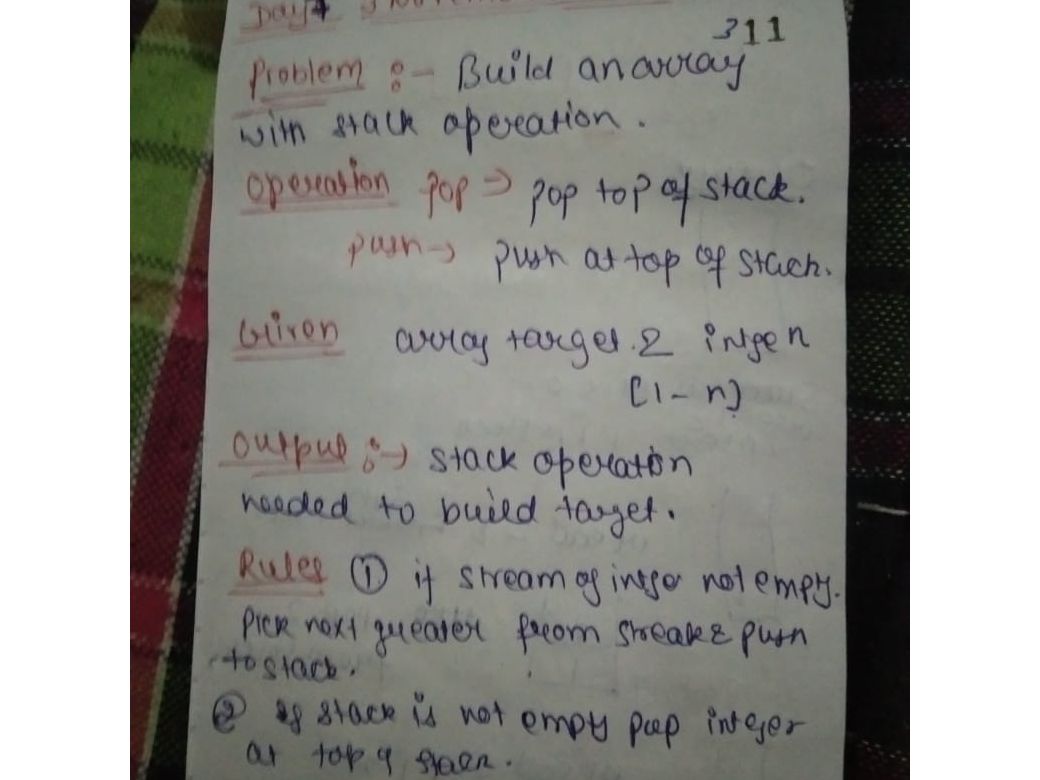 Day
311
Problem :- Build an array
with stack operation.
operation pop => pop top of stack.
push -> push at top of stack.
Given array target & intger n
[1-n]
output :-> stack operation
needed to build target.
Rules ① if stream of intger not empy.
Pick next greater from streak & push
to stack.
② if stack is not empty pop integer
at top of stack.